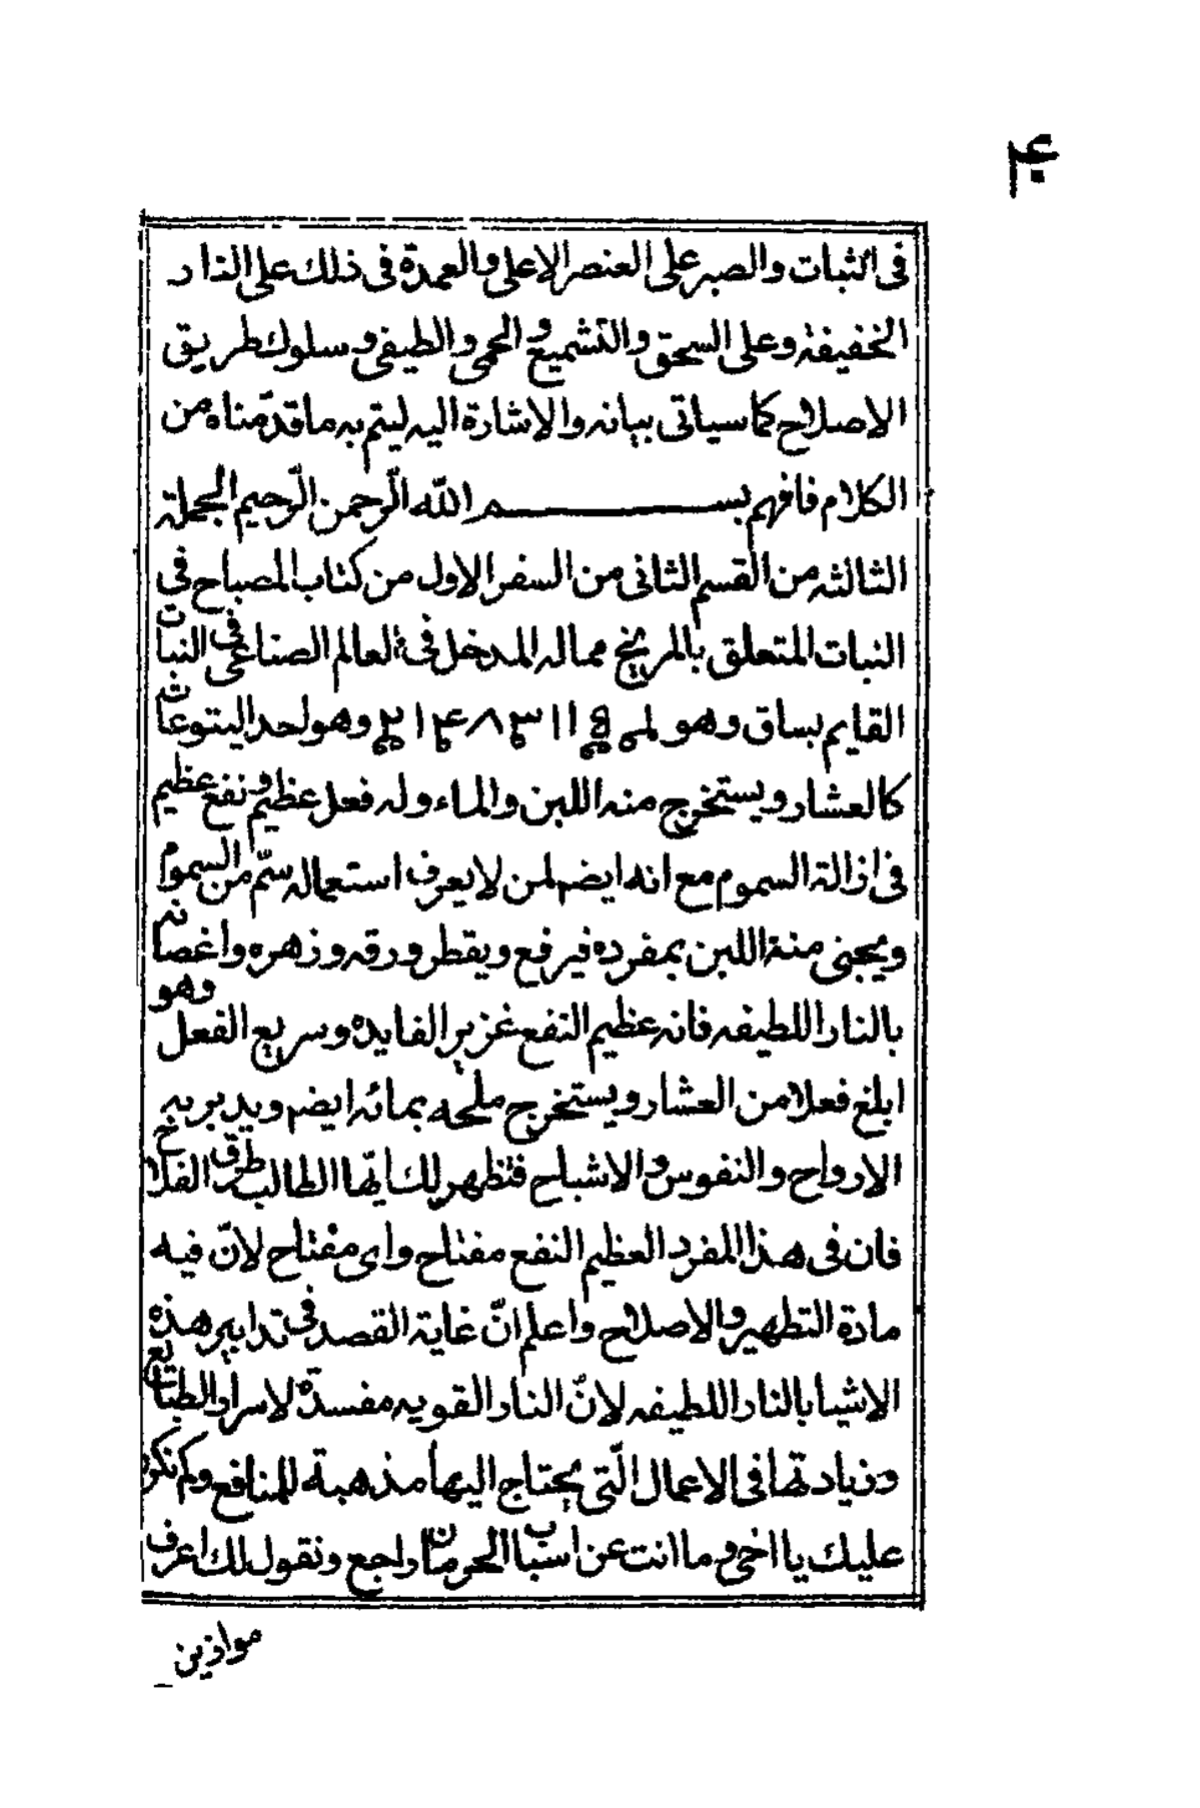 ۴۰
فى الثبات والصبر على العنصر الاعلى والعمدة فى ذلك على النار
الخفيفة وعلى السحق والتشميع والحمى والطيفى وسلوك طريق
الاصلاح كما سياتى بيانه والاشارة اليه ليتم به ما قدّمناه من
الكلام فافهم بسم الله الرّحمن الرّحيم الجملة
الثالثه من القسم الثانى من السفر الاول من كتاب المصباح فى
النبات المتعلق بالمريخ مماله المدخل فى العالم الصناعى فى النبات
القايم بساق وهو وهو احد اليتوعات
كالعشار ويستخرج منه اللبن والماء وله فعل عظيم ونفع عظيم
فى ازالة السموم مع انه ايضم لمن لا يعرف استعماله سمّ من السموم
ويجنى منة اللبن بمفرده فيرفع ويقطر ورقه وزهره واغصانه
بالنار اللطيفه فانه عظيم النفع غزير الفايده وسريع الفعل وهو
ابلغ فعلا من العشار ويستخرج ملحه بمائه ايضم ويدبر به
الارواح والنفوس والاشباح فتظهر لك ايّها الطالب طرق الفلاح
فان فى هذا المفرد العظيم النفع مفتاح واى مفتاح لانّ فيه
مادة التطهير والاصلاح واعلم انّ غاية القصد فى تدابير هذه
الاشيا بالنار اللطيفه لانّ النار القويه مفسدة لاسرار الطبايع
وزيادتها فى الاعمال الّتى يحتاج اليها مذهبة للمنافع وكم نكرر
عليك يا اخى وما انت عن اسباب الحرمان راجع ونقول لك اعرف
موازين